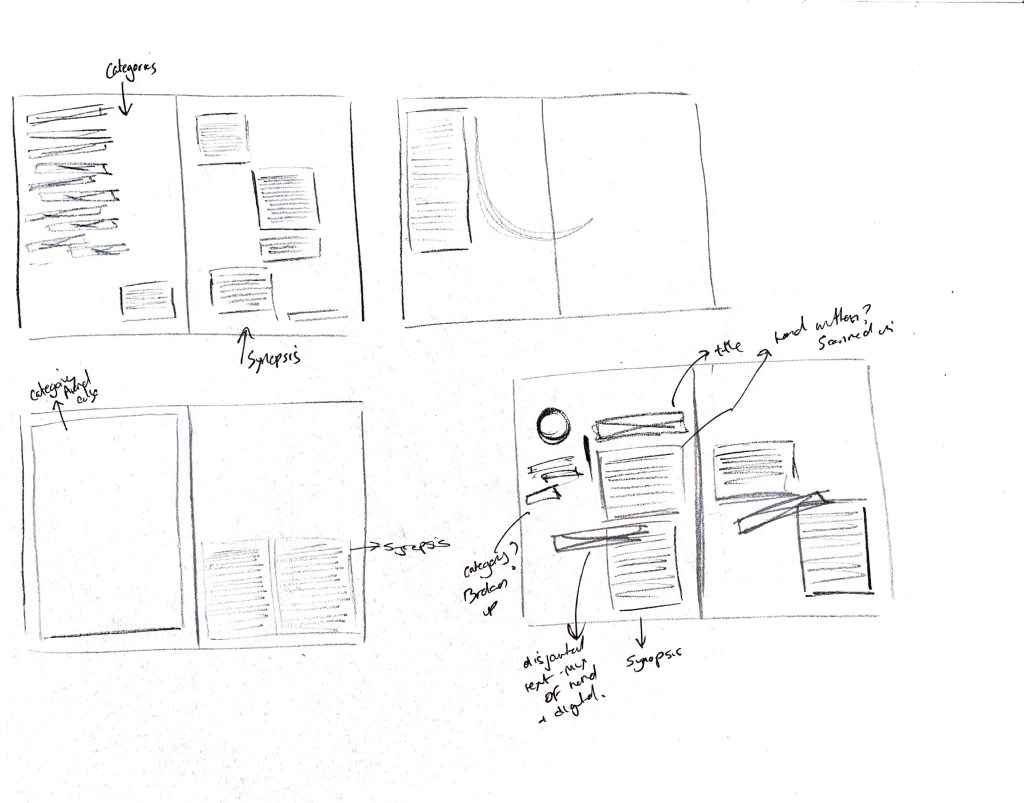 Categories
Synopsis
title
hand written?
Scanned in
Synopsis
category?
Broken
up
disjointed
text - mix
of hand
+ digital.
Synopsis